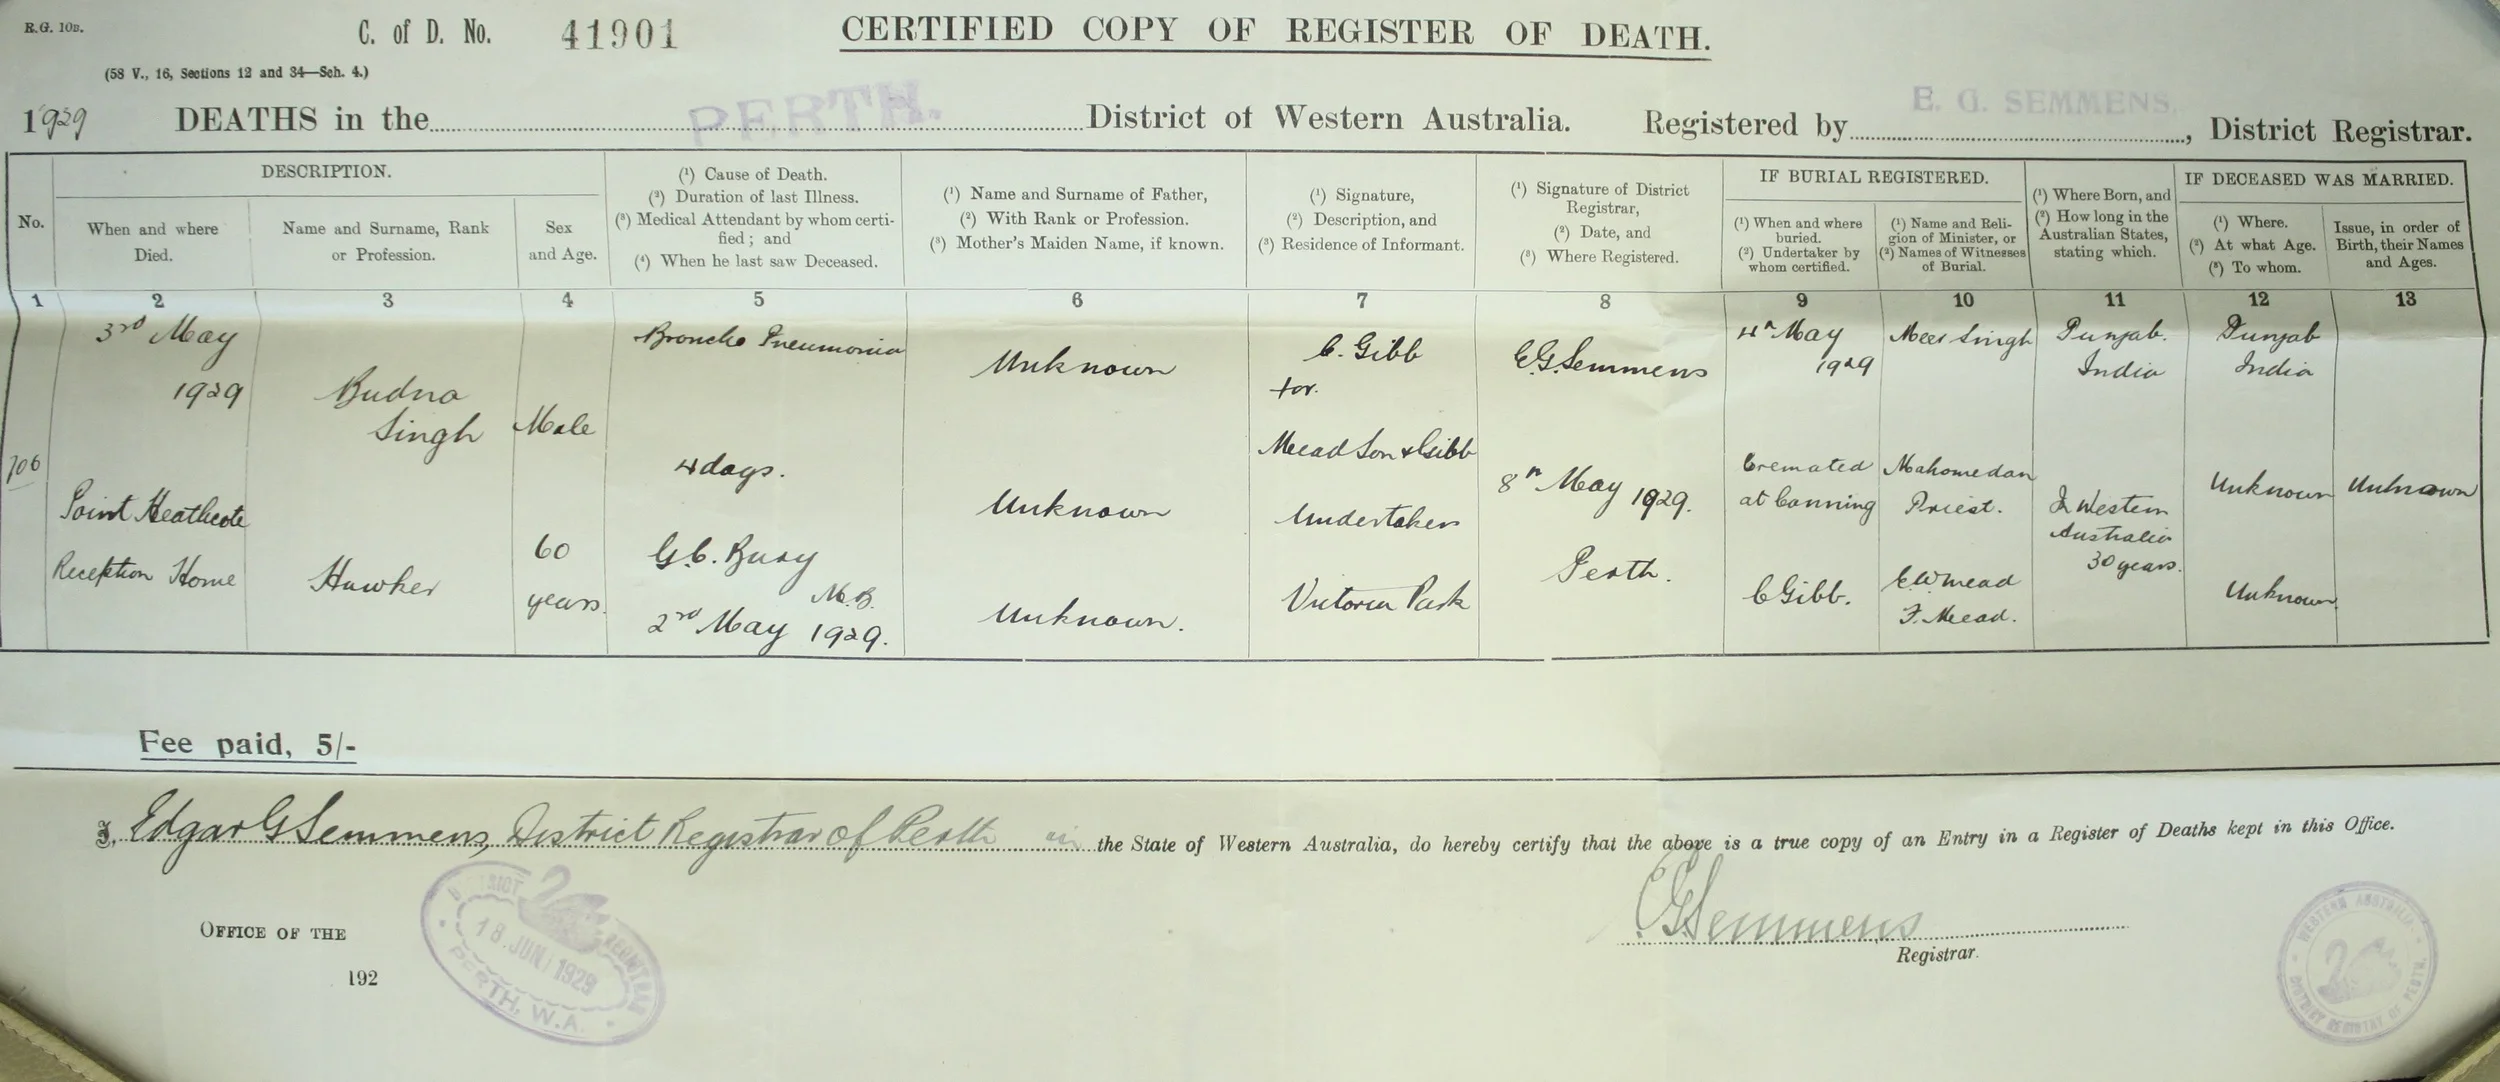 R.G. 10B.
C. of D. No. 41901
CERTIFIED COPY OF REGISTER OF DEATH.
(58 V., 16, Sections 12 and 34—Sch. 4.)
1929 DEATHS in the PERTH. District of Western Australia. Registered by E. G. SEMMENS, District Registrar.
No.
DESCRIPTION.
When and where
Died.
Name and Surname, Rank
or Profession.
Sex
and Age.
(1) Cause of Death.
(2) Duration of last Illness.
(3) Medical Attendant by whom certi-
fied; and
(4) When he last saw Deceased.
(1) Name and Surname of Father,
(2) With Rank or Profession.
(3) Mother's Maiden Name, if known.
(1) Signature,
(2) Description, and
(3) Residence of Informant.
(1) Signature of District
Registrar,
(2) Date, and
(3) Where Registered.
IF BURIAL REGISTERED.
(1) When and where
buried.
(2) Undertaker by
whom certified.
(1) Name and Reli-
gion of Minister, or
(2) Names of Witnesses
of Burial.
(1) Where Born, and
(2) How long in the
Australian States,
stating which.
IF DECEASED WAS MARRIED.
(1) Where.
(2) At what Age.
(3) To whom.
Issue, in order of
Birth, their Names
and Ages.
1 2 3 4 5 6 7 8 9 10 11 12 13
706
3rd May
1929
Point Heathcote
Reception Home
Budna
Singh
Hawker
Male
60
years.
Broncho Pneumonia
4 days.
G.C. Bury
M.B.
2nd May 1929.
Unknown
Unknown
Unknown.
C. Gibb
for.
Mead Son & Gibb
Undertaker
Victoria Park
E.G. Semmens
8th May 1929.
Perth.
4th May
1929
Cremated
at Canning
C Gibb.
Meer Singh
Mahomedan
Priest.
E.W. Mead
F. Mead.
Punjab.
India
In Western
Australia
30 years.
Punjab
India
Unknown
Unknown.
Unknown
Fee paid, 5/-
I, Edgar G Semmens, District Registrar of Perth in the State of Western Australia, do hereby certify that the above is a true copy of an Entry in a Register of Deaths kept in this Office.
E G Semmens
Registrar.
OFFICE OF THE
192
DISTRICT REGISTRAR
18. JUN 1929
PERTH, W.A.
WESTERN AUSTRALIA.
DISTRICT REGISTRY OF PERTH.